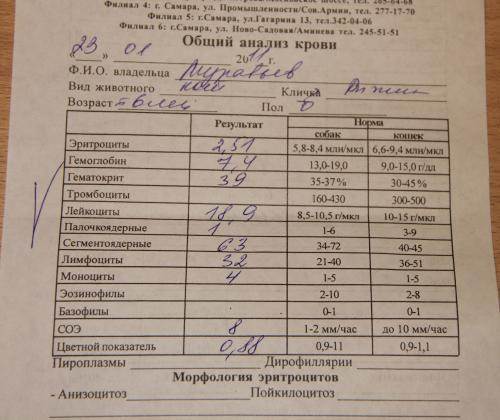 Филиал 4: г. Самара, ул. Промышленности/Сов.Армии, тел. 277-17-70
Филиал 5: г.Самара, ул.Гагарина 13, тел.342-04-06
Филиал 6: г.Самара, ул. Ново-Садовая/Аминева тел. 245-51-51
Общий анализ крови
«23» 01 2011 г.
Ф.И.О. владельца Муравьев
Вид животного кот Кличка Рыжик
Возраст 6 лет Пол
Результат Норма
собак кошек
Эритроциты 2,51 5,8-8,4 млн/мкл 6,6-9,4 млн/мкл
Гемоглобин 7,4 13,0-19,0 9,0-15,0 г/дл
Гематокрит 39 35-37% 30-45 %
Тромбоциты 160-430 300-500
Лейкоциты 18,9 8,5-10,5 г/мкл 10-15 г/мкл
Палочкоядерные 1 1-6 3-9
Сегментоядерные 63 34-72 40-45
Лимфоциты 32 21-40 36-51
Моноциты 4 1-5 1-5
Эозинофилы 2-10 2-8
Базофилы 0-1 0-1
СОЭ 8 1-2 мм/час до 10 мм/час
Цветной показатель 0,88 0,9-11 0,9-1,1
Пироплазмы Дирофиллярии
Морфология эритроцитов
- Анизоцитоз Пойкилоцитоз